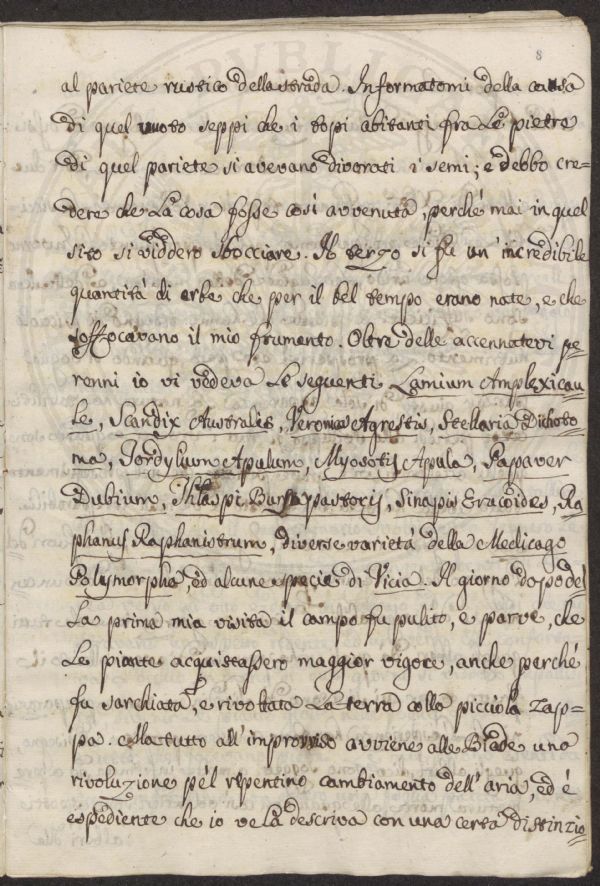 8
al pariete rustico della strada. Informatomi della causa
di quel vuoto seppi che i topi abitanti fra Le pietre
di quel pariete si avevano divorati i semi; e debbo cre=
dere che La cosa fosse così avvenuta, perché mai in quel
sito si viddero sbocciare. Il terzo si fu un' incredibile
quantitá di erbe che per il bel tempo erano nate, e che
soffocavano il mio frumento. Oltre delle accennatevi pe=
renni io vi vedeva Le seguenti Lamium Amplexicau=
le, Scandix Australis, Veronica Agrestis, Stellaria Dichoto=
ma, Tordylium Apulum, Myosotis Apula, Papaver
Dubium, Thlaspi Bursa pastoris, Sinapis Erucoides, Ra=
phanus Raphanistrum, diverse varietá della Medicago
Polymorpha, ed alcune specie di Vicia. Il giorno dopo del=
La prima mia visita il campo fu pulito, e parve, che
Le piante acquistassero maggior vigore, anche perché
fu sarchiata, e rivoltata La terra colla picciola zap=
pa. Ma tutto all'improvviso avviene alle Biade una
rivoluzione pel repentino cambiamento dell'aria, ed é
espediente che io ve La descriva con una certa distinzio=